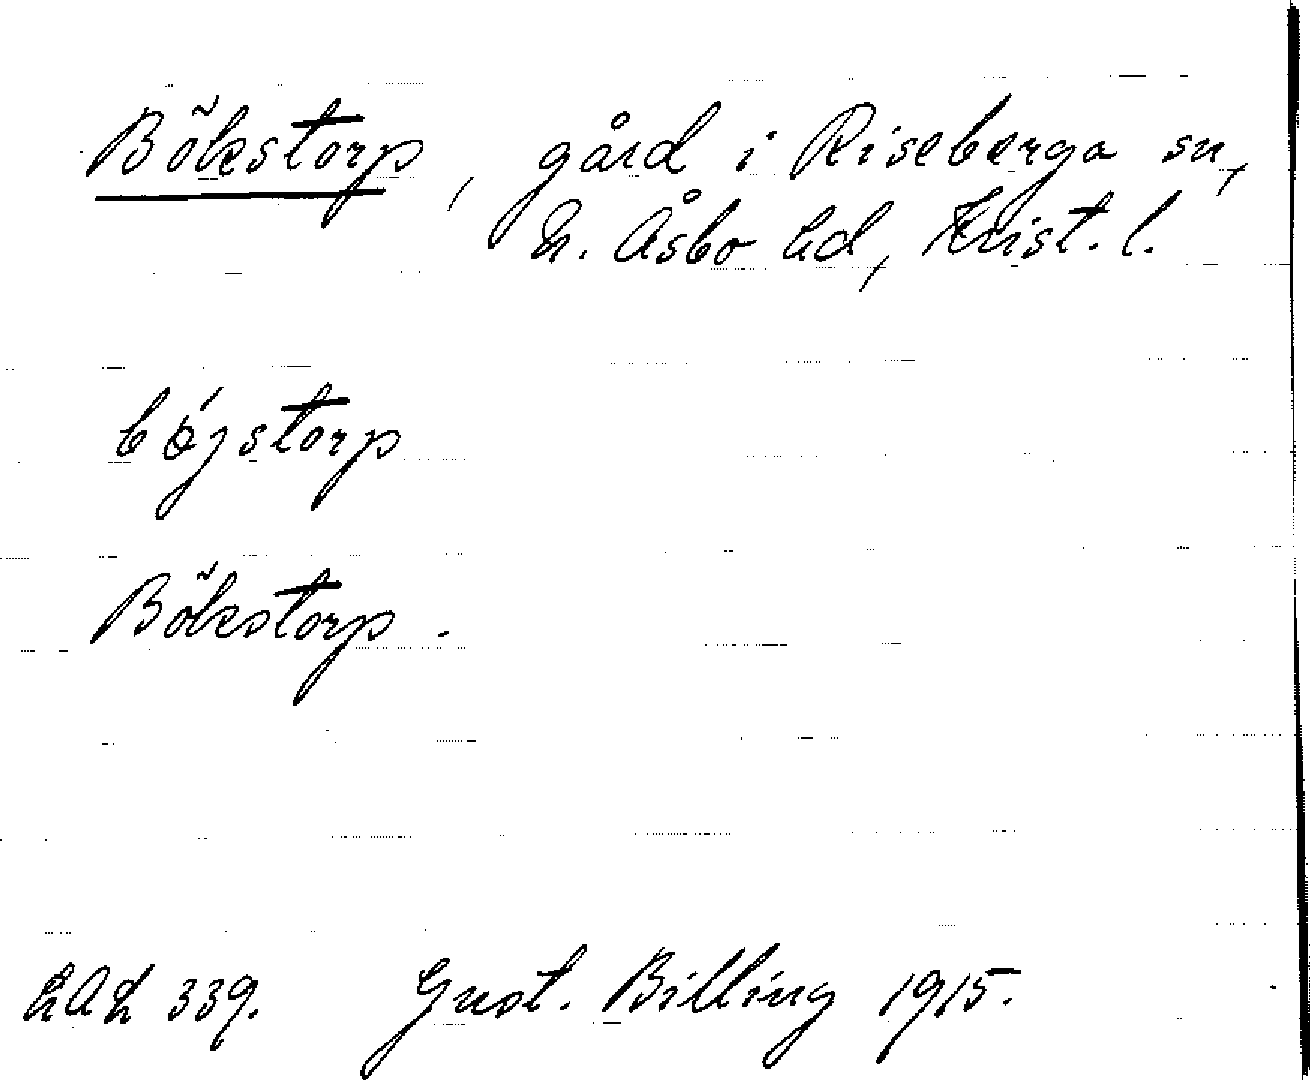 Bökstorp, gård i Riseberga sn,
N. Åsbo hd, Krist. l.
bǿjstorp
Bökstorp.
LAL 339. Gust. Billing 1915.